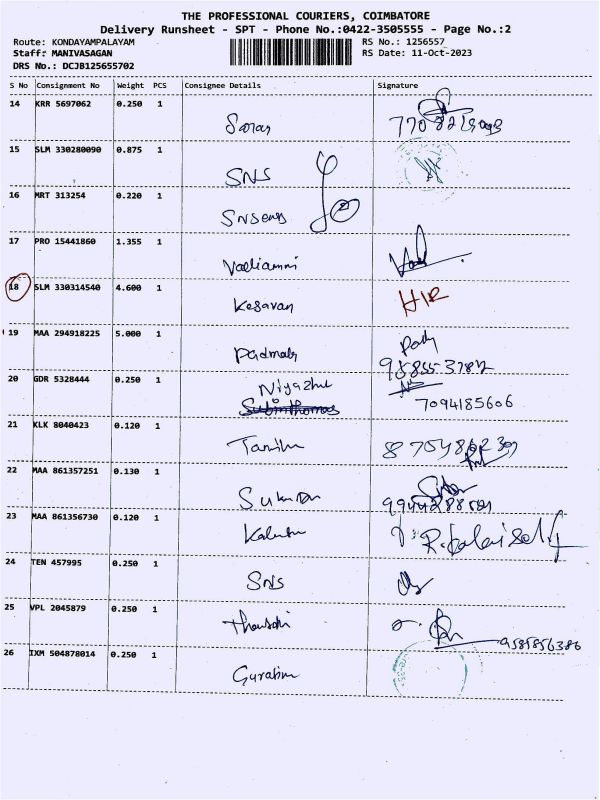 THE PROFESSIONAL COURIERS, COIMBATORE
Delivery Runsheet - SPT - Phone No.:0422-3505555 - Page No.:2
Route: KONDAYAMPALAYAM RS No.: 1256557
Staff: MANIVASAGAN RS Date: 11-Oct-2023
DRS No.: DCJB125655702
S No Consignment No Weight PCS Consignee Details Signature
14 KRR 5697062 0.250 1
Saran
15 SLM 330280090 0.875 1
SNS
16 MRT 313254 0.220 1
17 PRO 15441860 1.355 1
Valliammi
18 SLM 330314540 4.600 1
Kesavan HIR
19 MAA 294918225 5.000 1
Padmaly
20 GDR 5328444 0.250 1
Niyazhu
7094185606
21 KLK 8040423 0.120 1
22 MAA 861357251 0.130 1
23 MAA 861356730 0.120 1
24 TEN 457995 0.250 1
SNS
25 VPL 2045879 0.250 1
9581856386
26 IXM 504878014 0.250 1